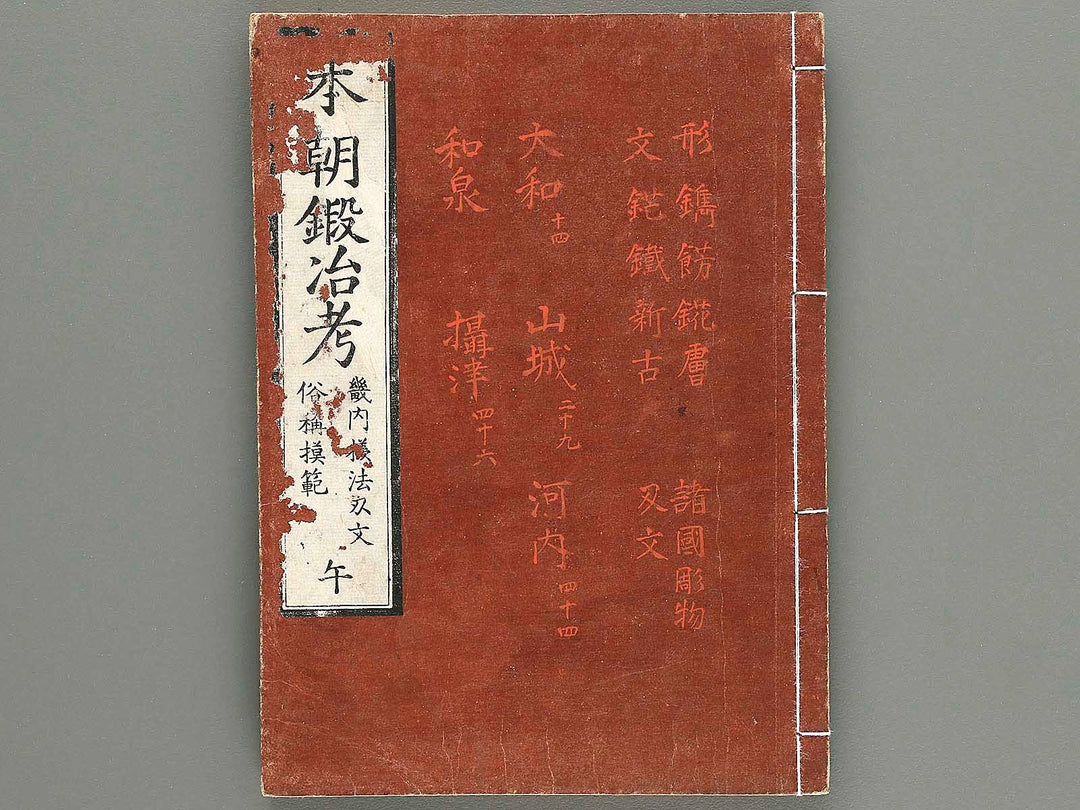 形 鐫 餝 鋩 層 諸國彫物
文 鋩 鐵 新古 刄文
大和 十四 山城 二十九 河内 四十四
和泉 攝津 四十六
本朝鍛冶考
畿内掟法刄文
俗稱摸範
午